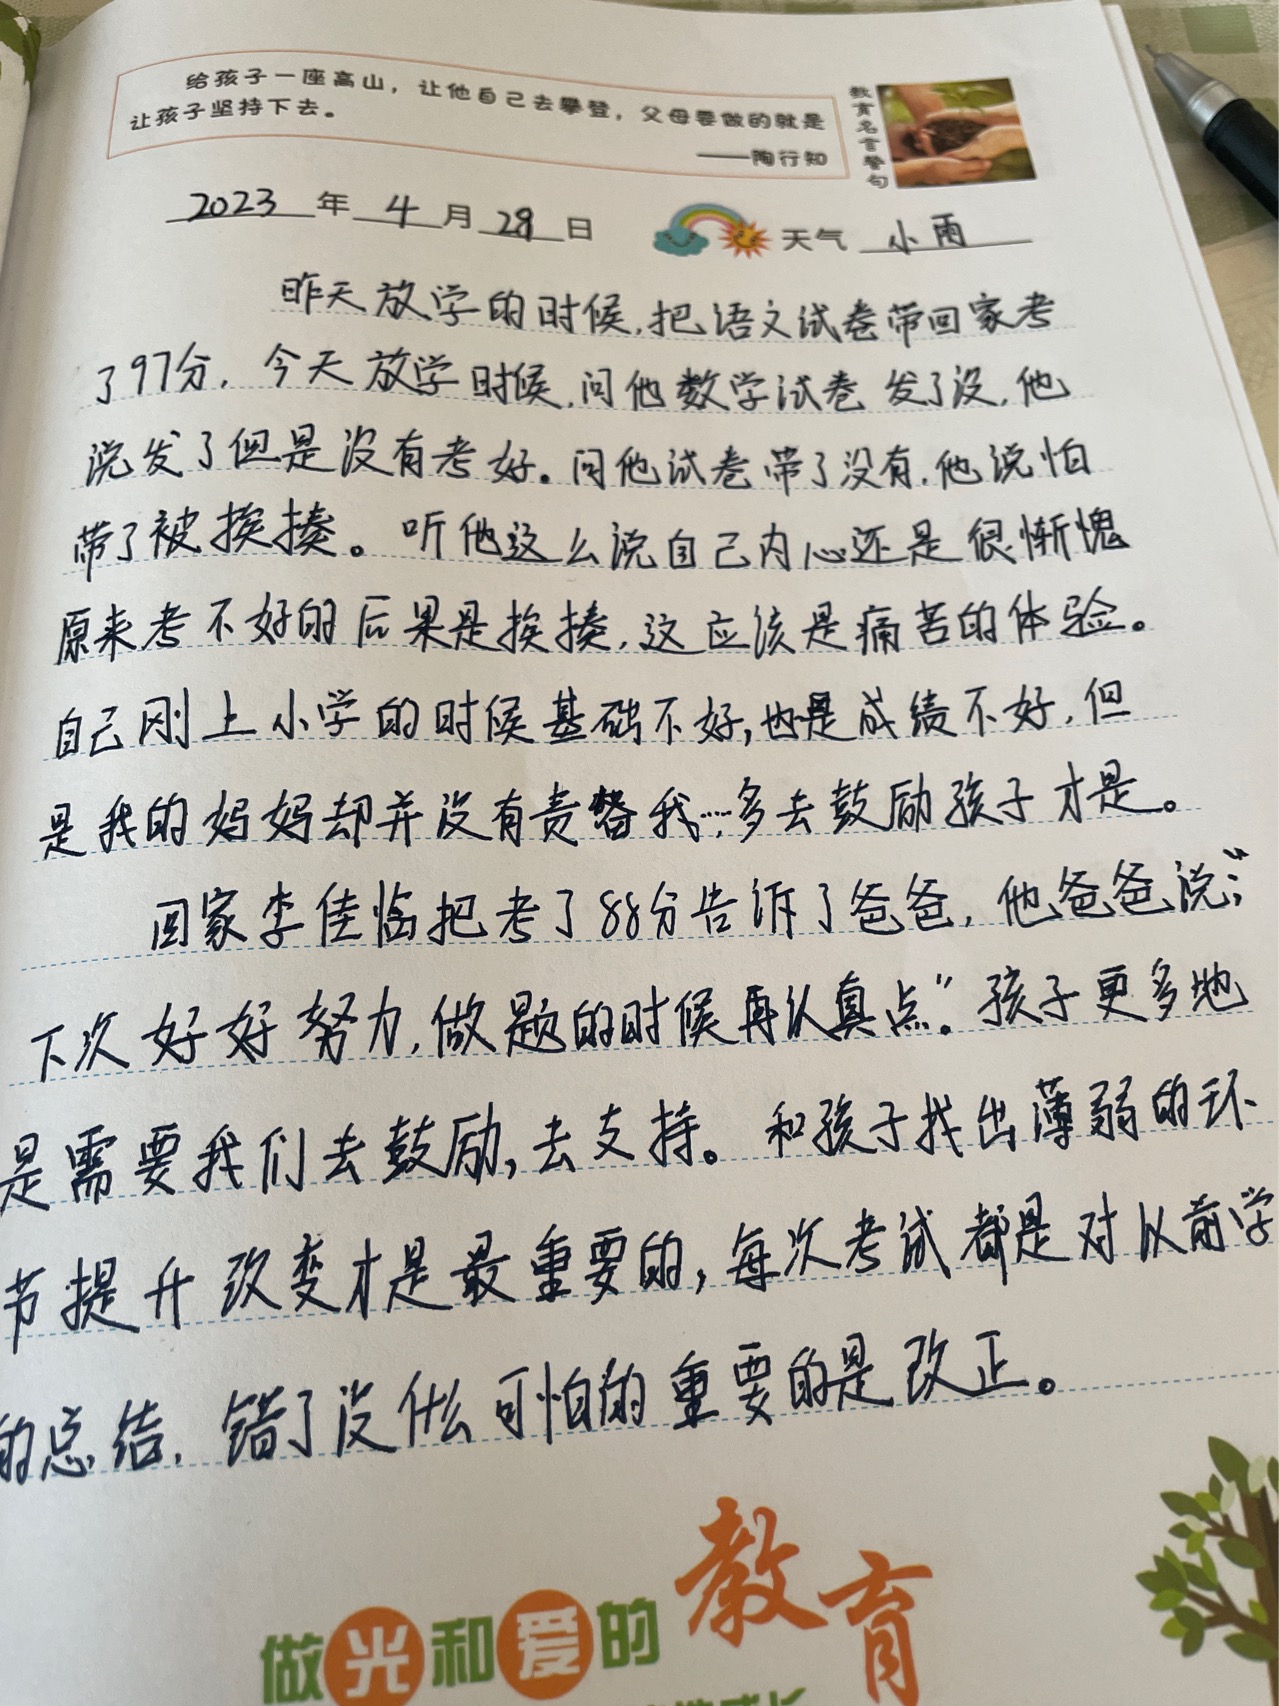 给孩子一座高山，让他自己去攀登，父母要做的就是
让孩子坚持下去。
——陶行知
教育名言警句
2023年4月28日 天气 小雨
昨天放学的时候,把语文试卷带回家考
了97分.今天放学时候.问他数学试卷发了没,他
说发了但是没有考好。问他试卷带了没有.他说怕
带了被挨揍。听他这么说自己内心还是很惭愧
原来考不好的后果是挨揍,这应该是痛苦的体验。
自己刚上小学的时候基础不好,也是成绩不好,但
是我的妈妈却并没有责备我…多去鼓励孩子才是。
回家李佳临把考了88分告诉了爸爸,他爸爸说:“
下次好好努力,做题的时候再认真点。”孩子更多地
是需要我们去鼓励,去支持。和孩子找出薄弱的环
节提升改变才是最重要的,每次考试都是对以前学
的总结.错了没什么可怕的重要的是改正。
做光和爱的教育
成长